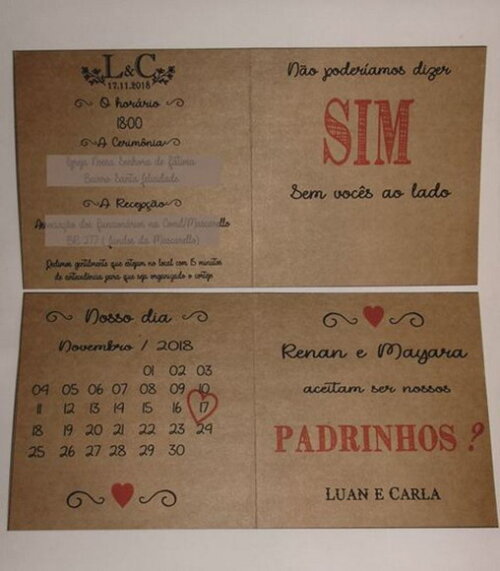 L&C
17.11.2018
O horário
18:00
A Cerimônia
Igreja Nossa Senhora de fátima
Bairro Santa felicidade
A Recepção
Associação dos funcionários na Comil/Mascarello
BR 277 ( fundos da Mascarello)
Pedimos gentilmente que estejam no local com 15 minutos
de antecedência para que seja organizado o cortejo
Não poderíamos dizer
SIM
Sem vocês ao lado
Nosso dia
Novembro / 2018
01 02 03
04 05 06 07 08 09 10
11 12 13 14 15 16 17
18 19 20 21 22 23 24
25 26 27 28 29 30
Renan e Mayara
aceitam ser nossos
PADRINHOS ?
LUAN E CARLA